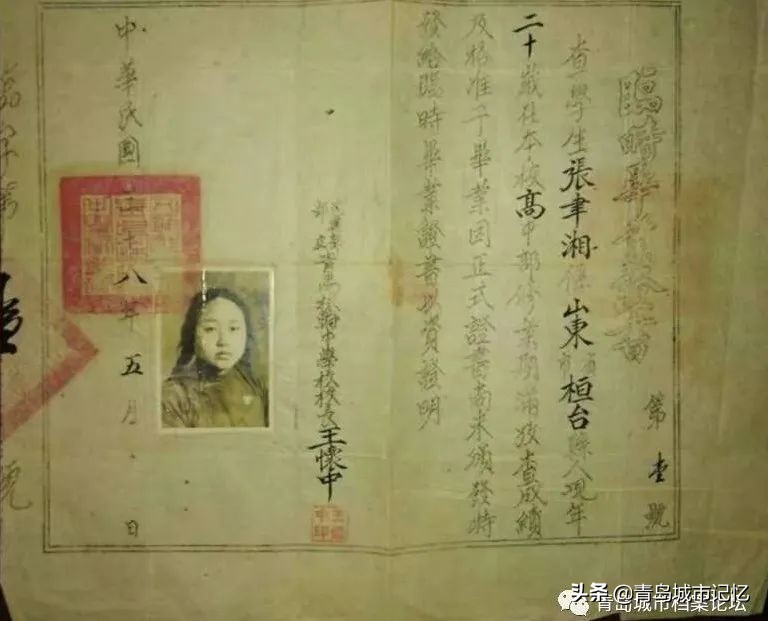 臨時畢業證書
第壹號
查學生張聿湘係山東省市桓台縣人現年
二十歲在本校高中部修業期滿考查成績
及格准予畢業因正式證書尚未頒發特
發給臨時畢業證書以資證明
青島中學校校長王懷中
中華民國三十八年五月 日
號
头条 @青岛城市记忆
青岛城市档案论坛